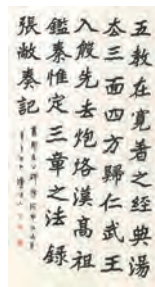 五教在寬著之經典湯
厺三面四方歸仁武王
入殷先去炮烙漢高祖
鑑秦惟定三章之法錄
張敞奏記